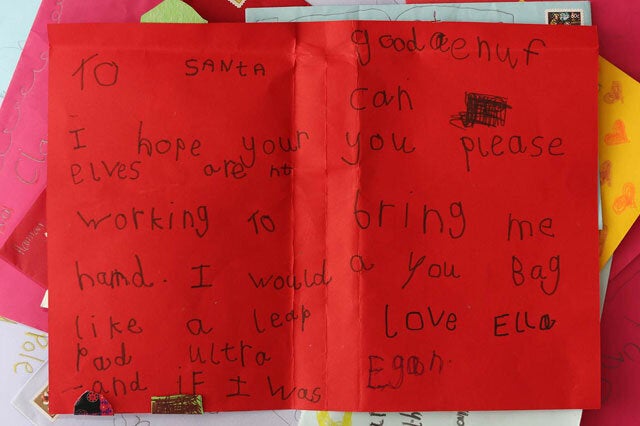 TO SANTA
I hope your
ELVES are nt
working TO
hamd. I would
like a leap
Pad ultra
-and iF I was
goodaenuf
can
you please
bring me
a You Bag
LOVE Ella
Egan.
Pole